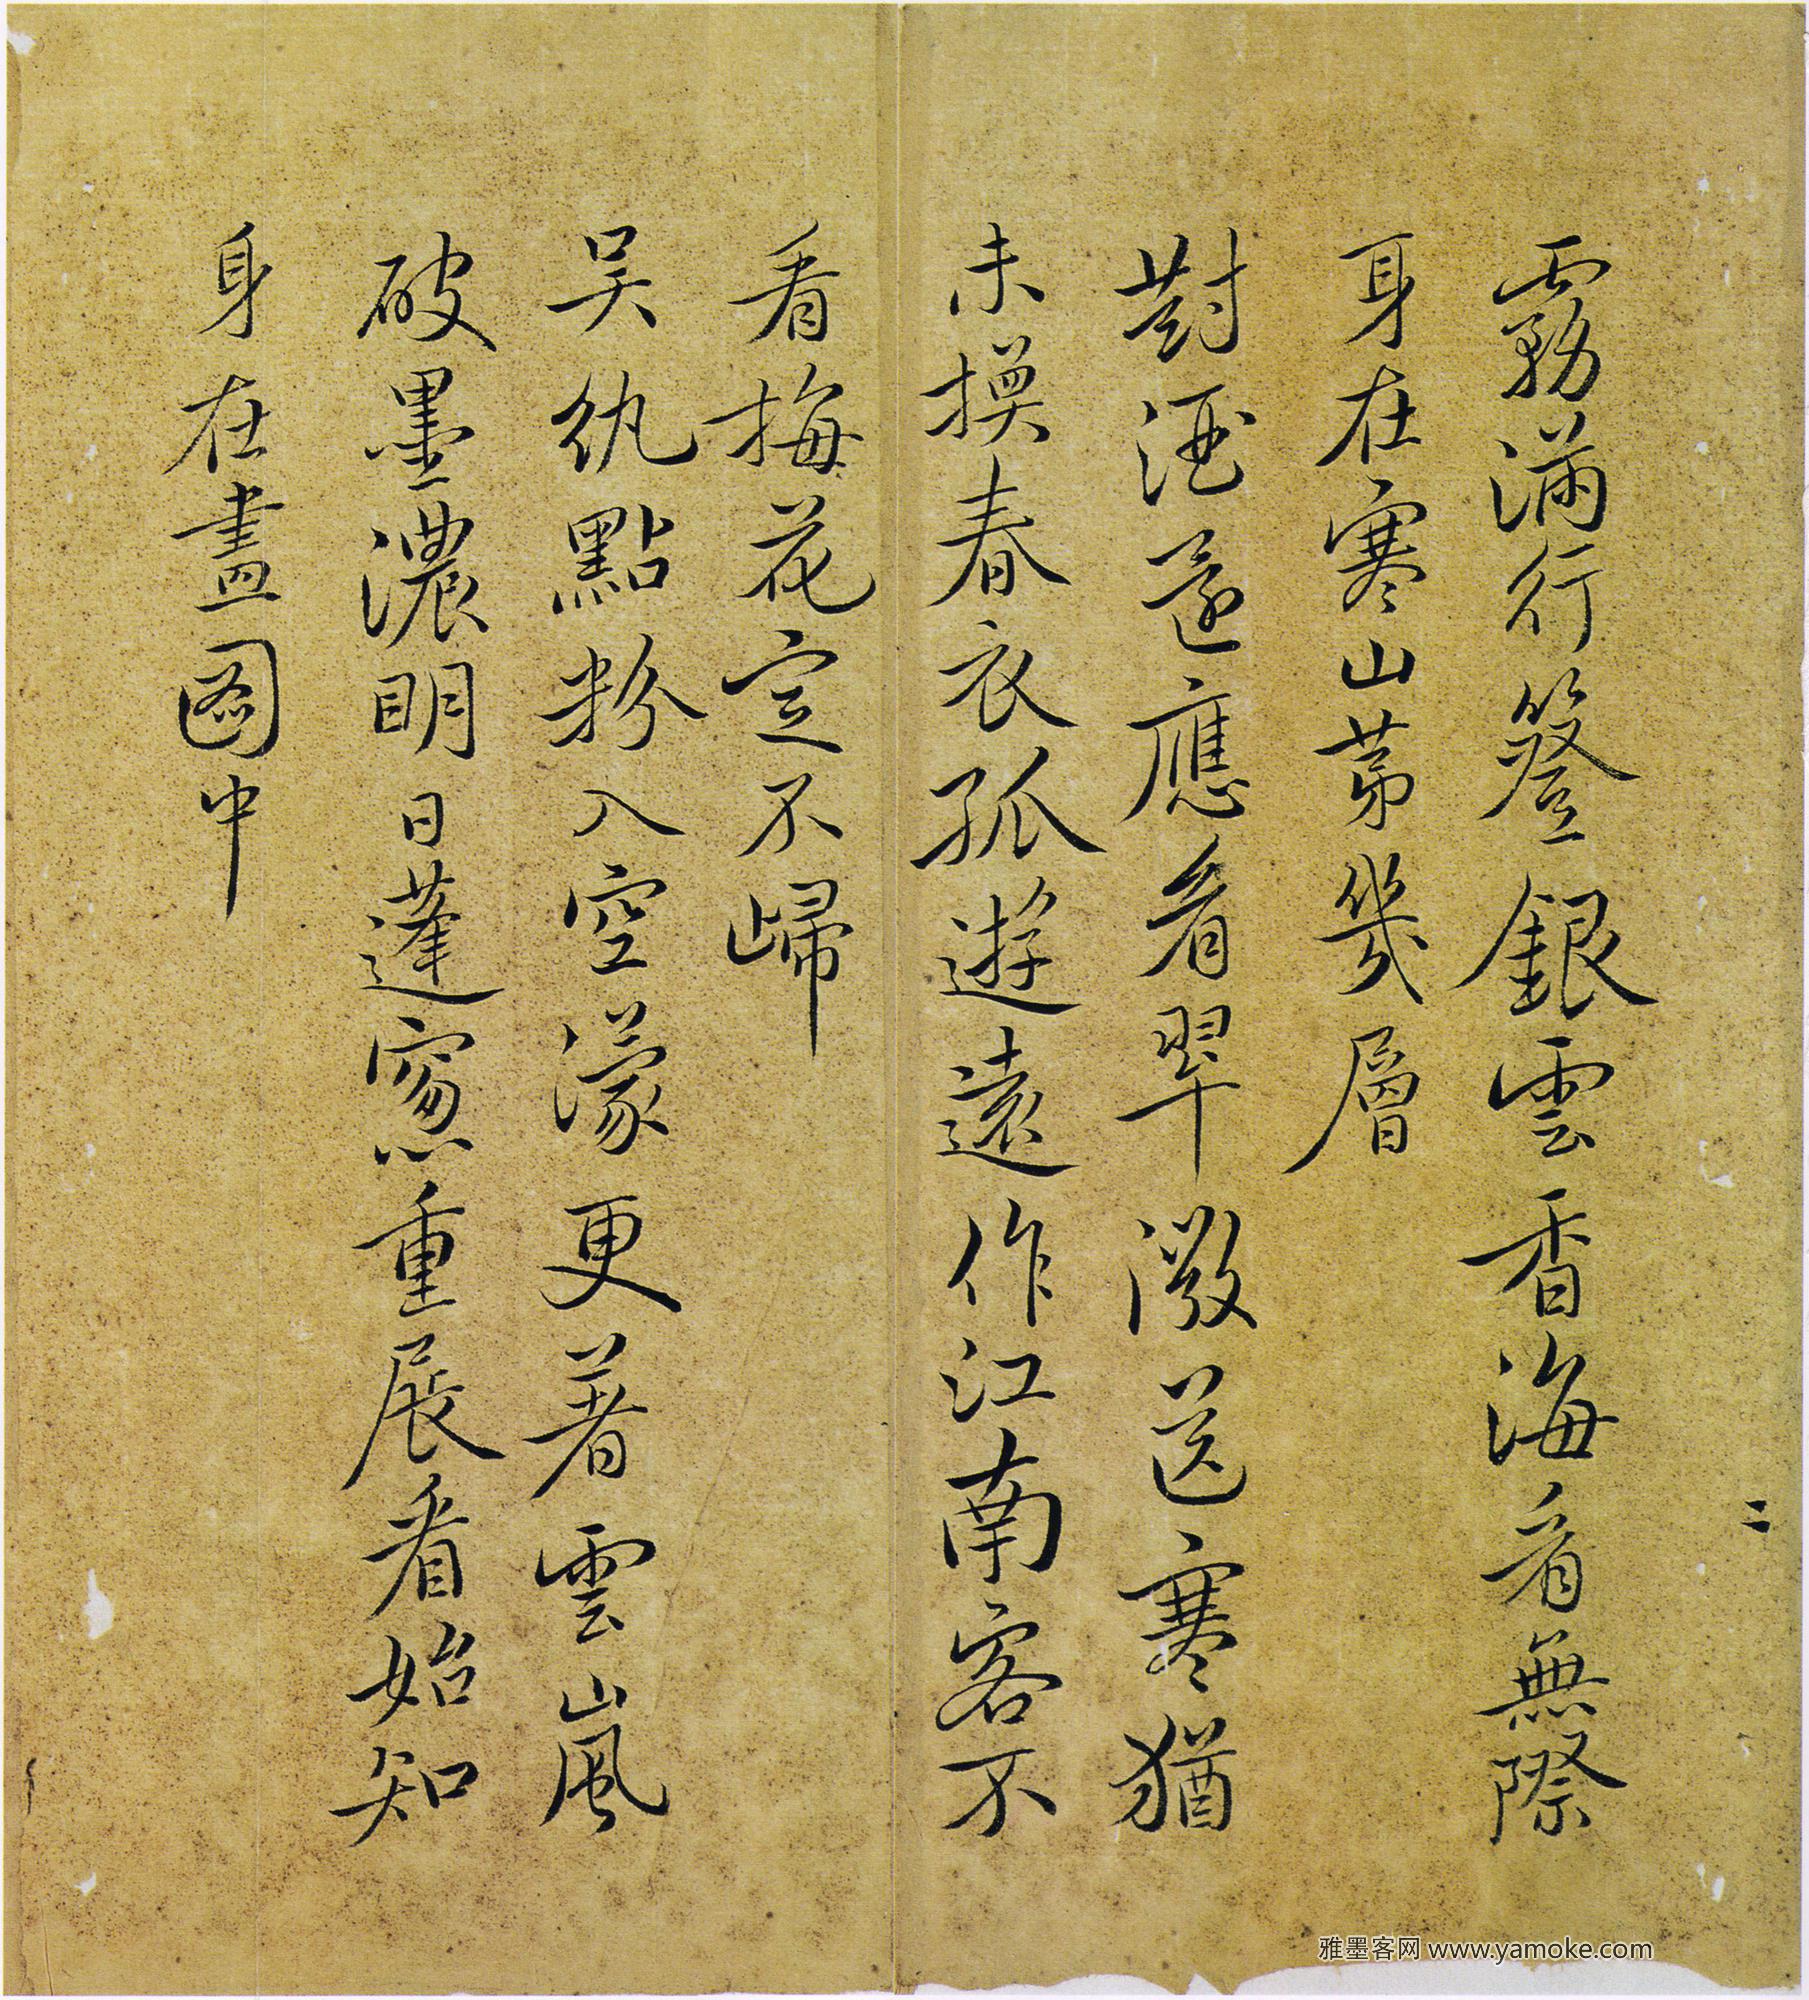 霧滿行簦銀雲香海看無際
身在寒山苐幾層
對酒還應看翠微送寒猶
未換春衣孤遊遠作江南客不
看梅花定不歸
吴紈點粉入空濛更著雲嵐
破墨濃明日蓬窓重展看始知
身在畫圖中
二
雅墨客网 www.yamoke.com